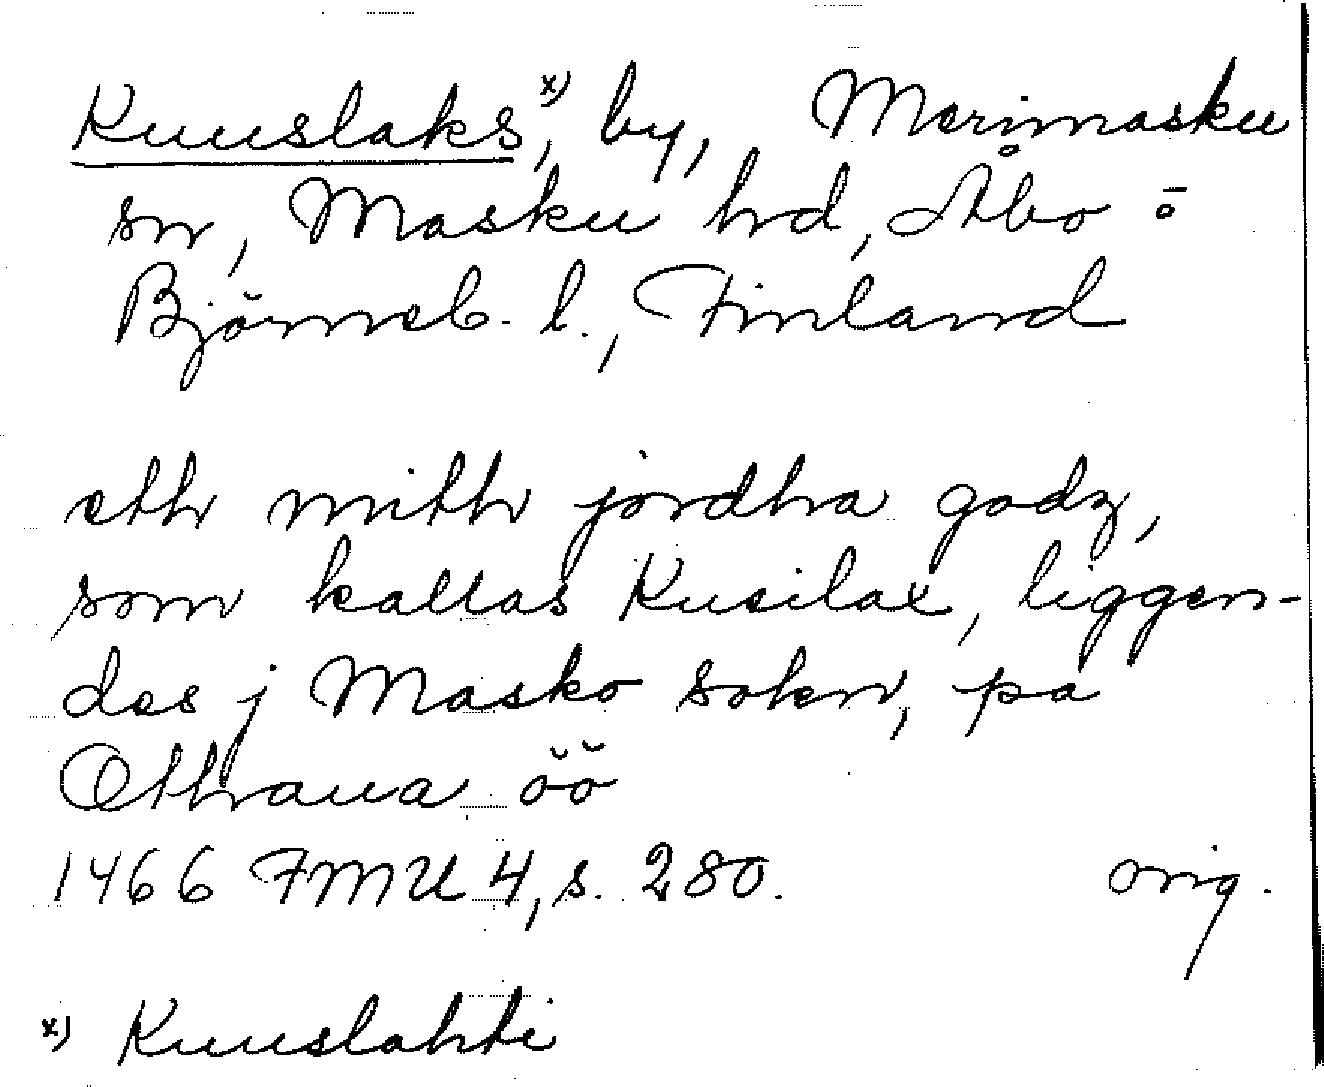 Kuuslaks x), by, Merimasku
sn, Masku hd, Åbo o
Björneb. l., Finland
eth mith jordha godz,
som kallas Kusilax, liggen-
des j Masko sokn, pa
Otthraua öö
1466 FMU 4, s. 280. orig.
x) Kuuslahti